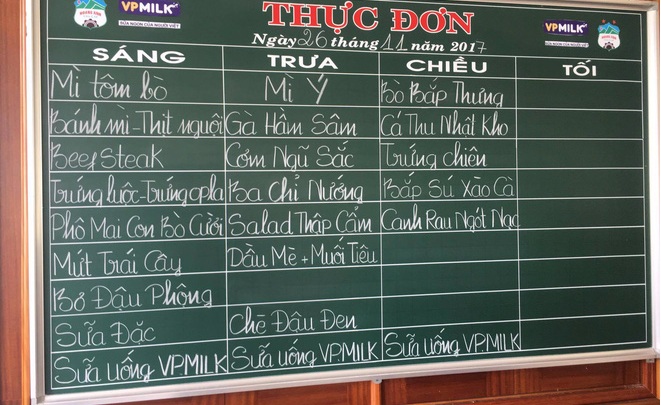 HOANG ANH
VPMILK
SỮA NGON CỦA NGƯỜI VIỆT
THỰC ĐƠN
VPMILK
SỮA NGON CỦA NGƯỜI VIỆT
Ngày 26 tháng 11 năm 2017
SÁNG TRƯA CHIỀU TỐI
Mì tôm bò Mì Ý Bò Bắp Thưng
Bánh mì-Thịt nguội Gà Hầm Sâm Cá Thu Nhật Kho
Beef Steak Cơm Ngũ Sắc Trứng chiên
Trứng luộc-Trứng opla Ba Chỉ Nướng Bắp Sú Xào Cà
Phô Mai Con Bò Cười Salad Thập Cẩm Canh Rau Ngót Nạc
Mứt Trái Cây Dầu Mè + Muối Tiêu
Bơ Đậu Phộng
Sữa Đặc Chè Đậu Đen
Sữa uống VPMILK Sữa uống VPMILK Sữa uống VPMILK